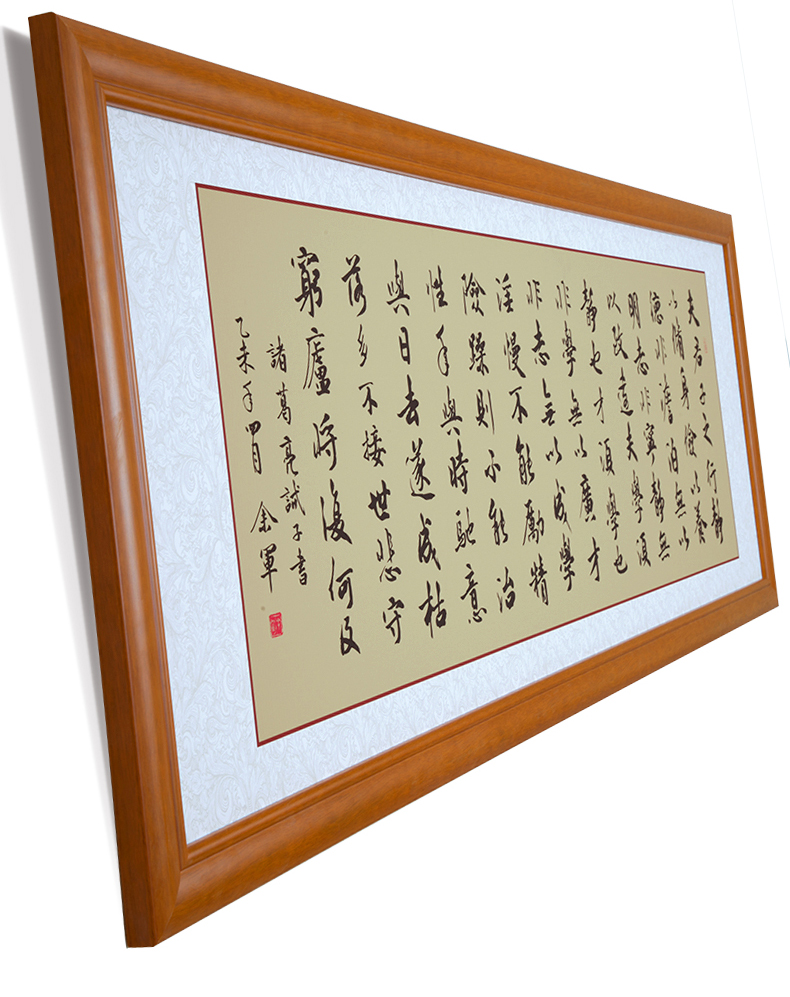 夫君子之行靜
以脩身儉以養
德非澹泊無以
明志非寧靜無
以致遠夫學須
靜也才須學也
非學無以廣才
非志無以成學
淫慢不能勵精
險躁則不能治
性年與時馳意
與日去遂成枯
落多不接世悲守
窮廬將復何及
諸葛亮誡子書
乙未年四月 余軍